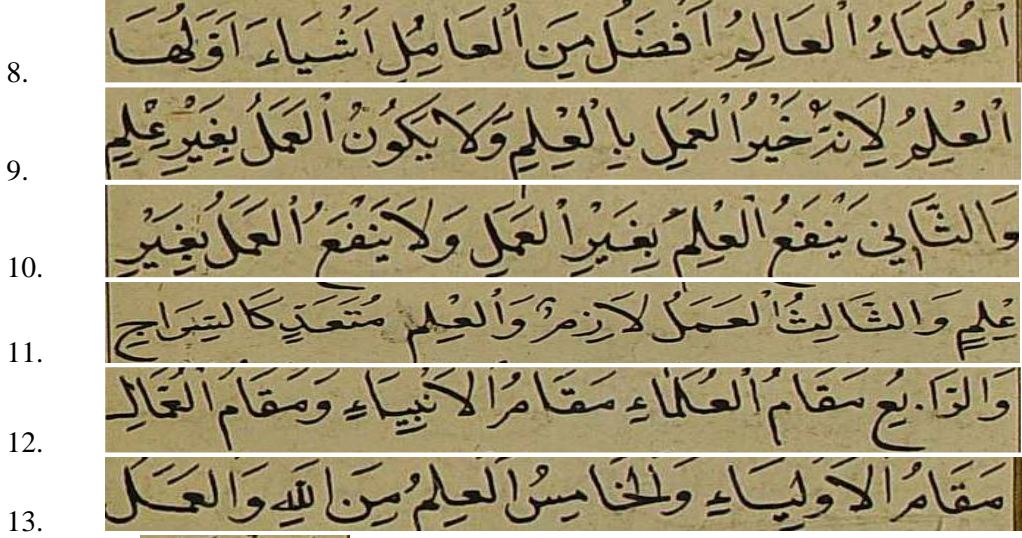 8. اَلْعُلَمَاءُ الْعَالِمُ اَفْضَلُ مِنَ الْعَامِلِ اَشْيَاءَ اَوَّلُهَا
9. اَلْعِلْمُ لِاَنَّهُ خَيْرُ الْعَمَلِ بِالْعِلْمِ وَلَا يَكُونُ الْعَمَلُ بِغَيْرِ عِلْمٍ
10. وَالثَّانِي يَنْفَعُ الْعِلْمُ بِغَيْرِ الْعَمَلِ وَلَا يَنْفَعُ الْعَمَلُ بِغَيْرِ
11. عِلْمٍ وَالثَّالِثُ الْعَمَلُ لَازِمٌ وَالْعِلْمُ مُتَعَدٍّ كَالسِّرَاجِ
12. وَالرَّابِعُ مَقَامُ الْعُلَمَاءِ مَقَامُ الْاَنْبِيَاءِ وَمَقَامُ الْعُمَّالِ
13. مَقَامُ الْاَوْلِيَاءِ وَالْخَامِسُ الْعِلْمُ مِنَ اللهِ وَالْعَمَلُ